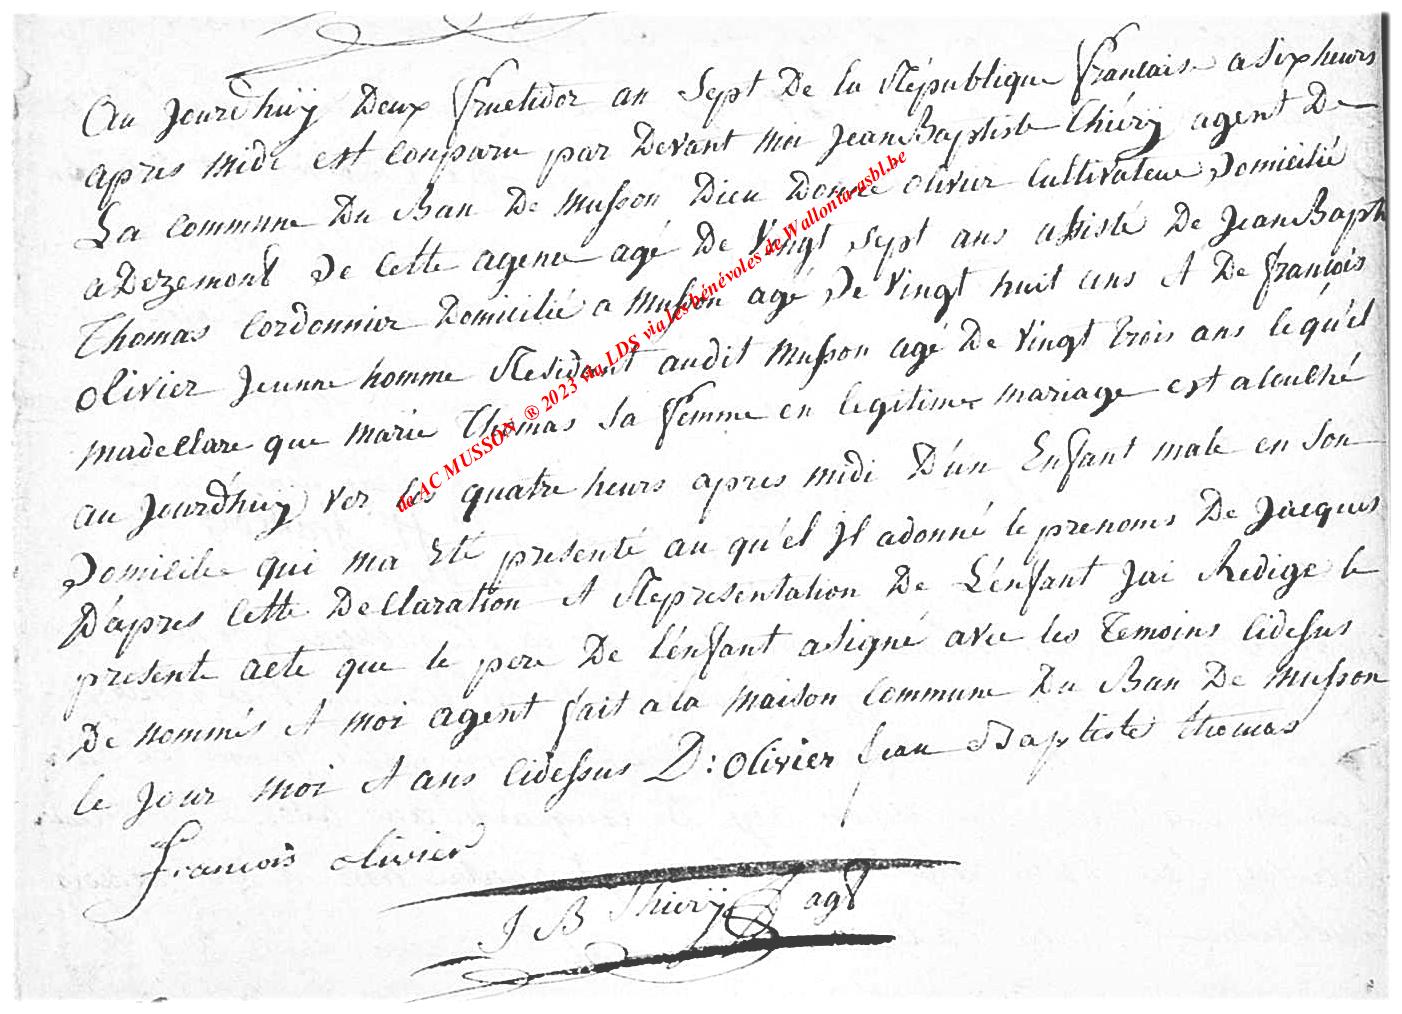 Au jourdhuÿ Deux fructidor an Sept De la République francaise a six heurs
apres midi est comparu par Devant moi Jean Baptiste Thiérÿ agent De
La commune Du Ban De Musson Dieu Donné olivier Cultivateur Domicilié
a Dezemont De cette agence agé De Vingt Sept ans assisté De Jean Bapte
Thomas Cordonnier Domicilié a Musson agé De Vingt huit ans et De françois
olivier Jeunne homme Residant audit Musson agé De Vingt trois ans lequ'el
madecllare que marie Thomas Sa femme en legitime mariage est acouché
au jourd'huÿ ver les quatre heurs apres midi D'un Enfant male en Son
Domicile qui ma Eté presenté au qu'el Jl adonné le prenoms De Jacques
D'apres cette Declaration et Representation De L'enfant Jai Redigé le
present acte que le pere De L'enfant a signé avec les Temoins cidessus
De nommés et moi agent fait a la maison commune Du Ban De Musson
le jour moi et ans cidessus D: olivier Jean Baptiste thomas
françois olivier
J B Thierÿ agt
de AC MUSSON ® 2023 via LDS via les bénévoles de Wallonia-asbl.be